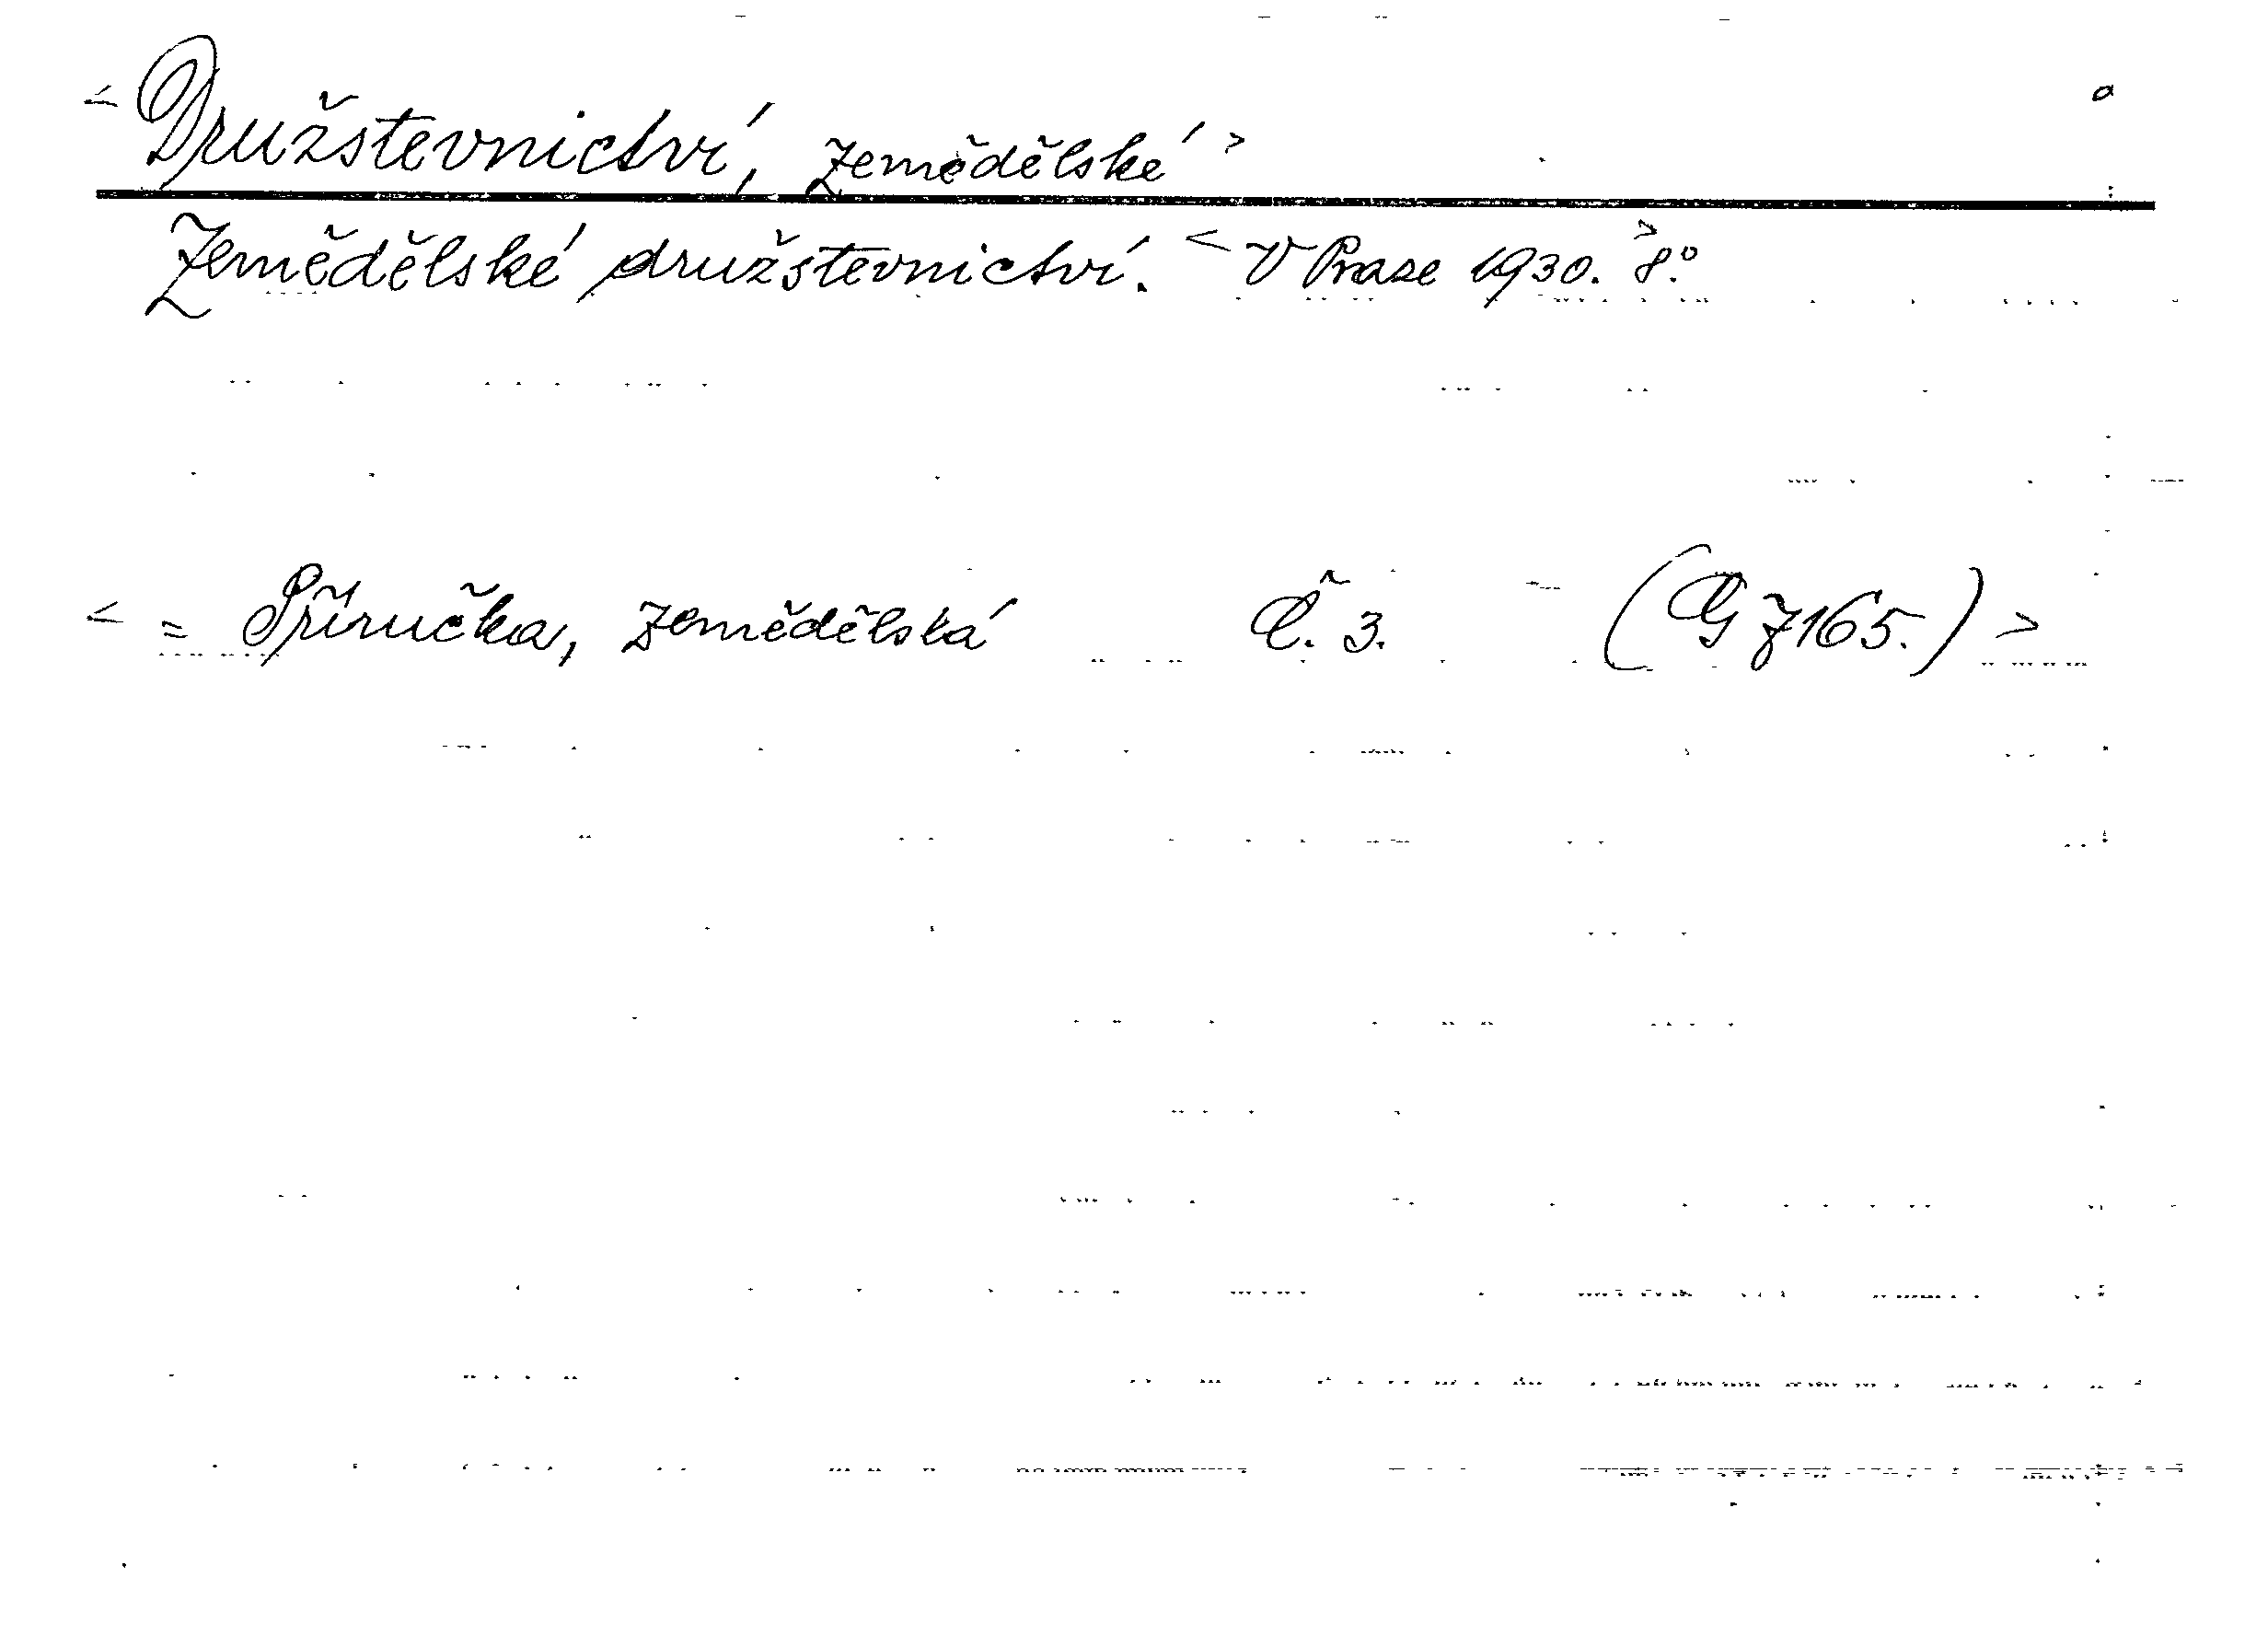 < Družstevnictví, zemědělské >
Zemědělské družstevnictví. < V Praze 1930. > 8.°
< = Příručka, zemědělská Č. 3. (G 7165.) >